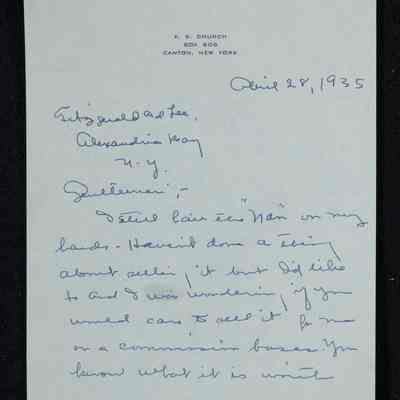 F. S. CHURCH
BOX 606
CANTON, NEW YORK
April 28, 1935
Fitzgerald and Lee,
Alexandria Bay
N-Y.
Gentlemen;-
I still have the "Nan" on my
hands - Haven't done a thing
about selling it but I'd like
to and I was wondering if you
would care to sell it for me
on a commission bases. You
know what it is worth